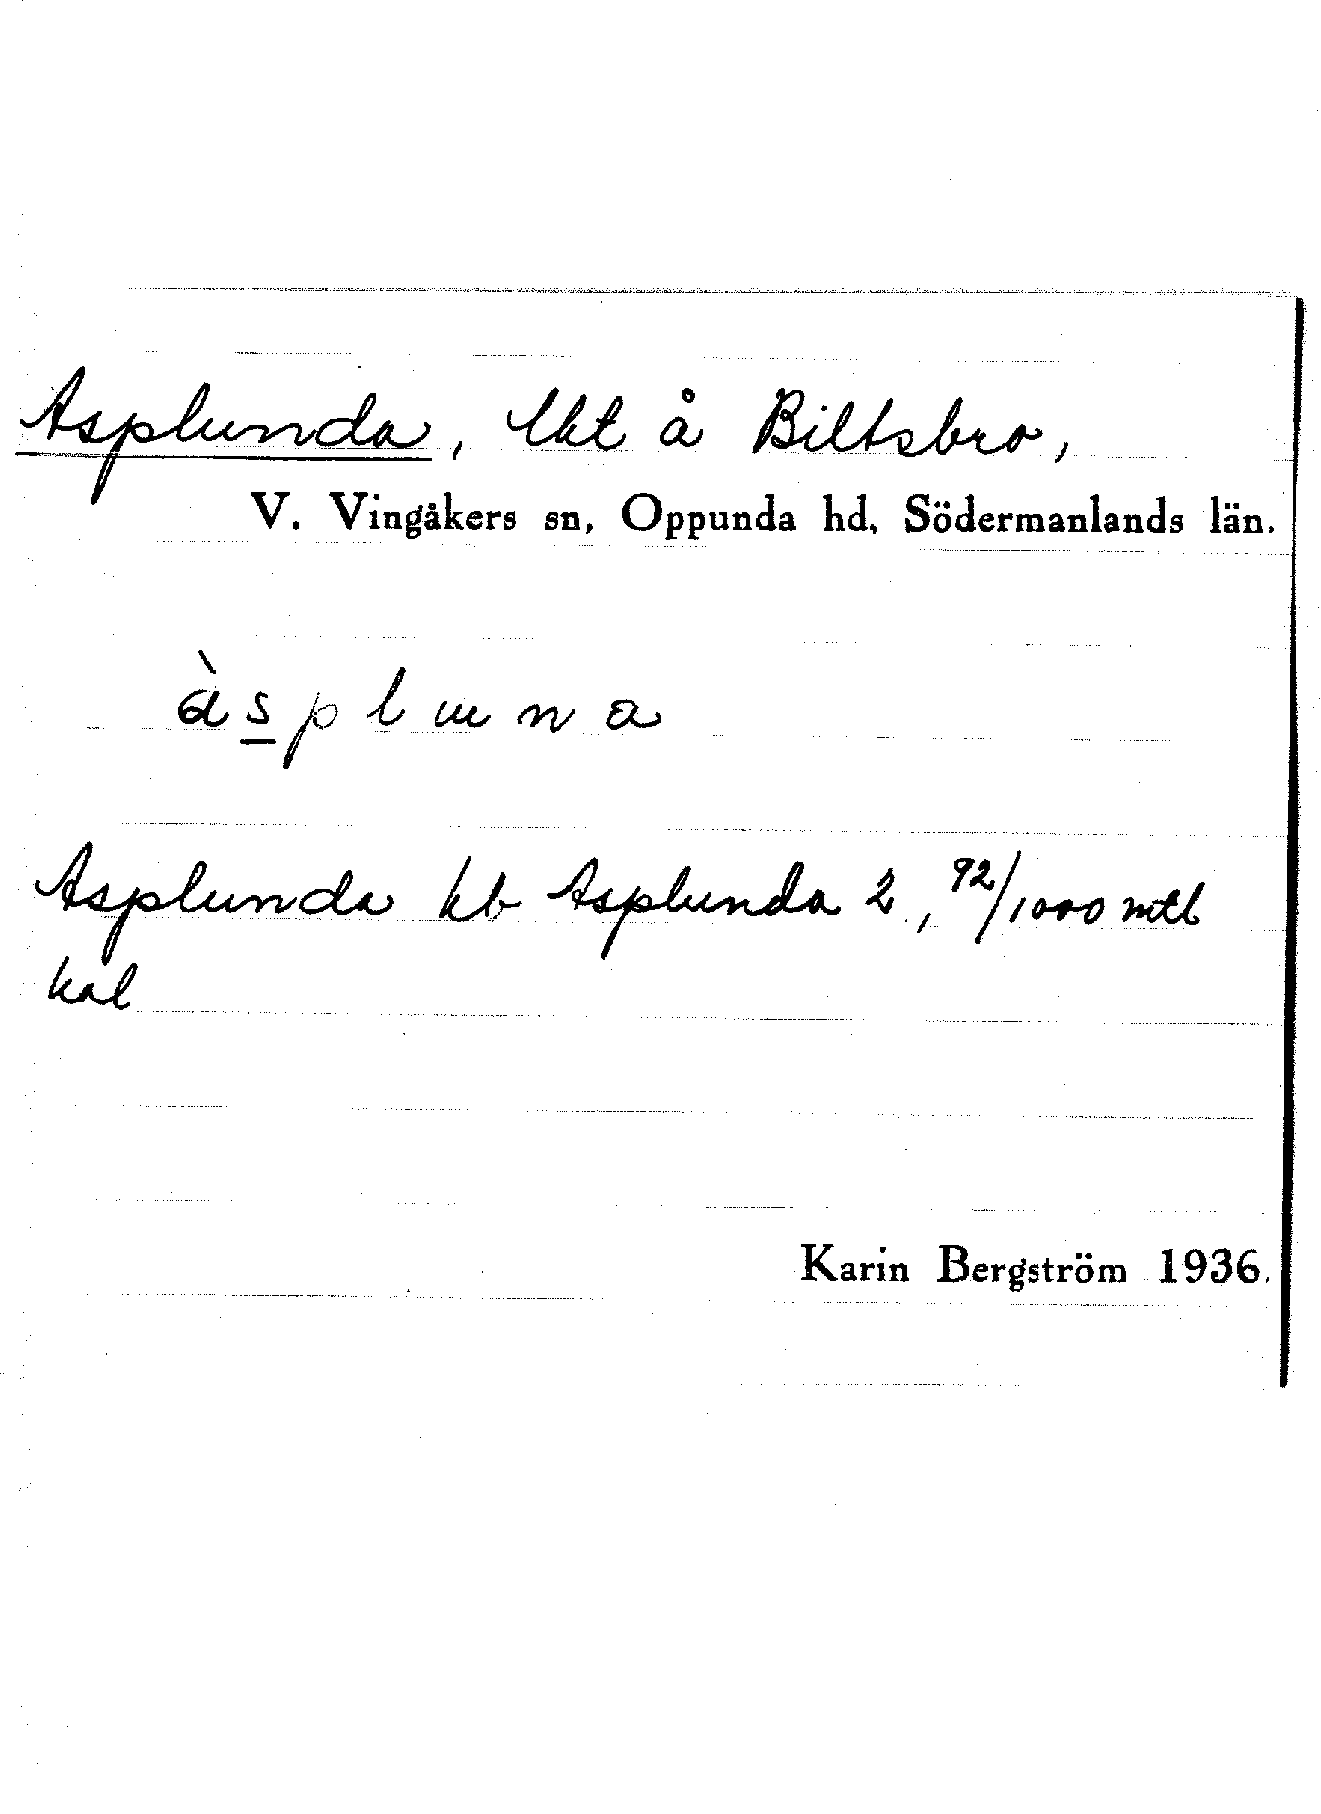 Asplunda, lht å Biltsbro,
V. Vingåkers sn, Oppunda hd, Södermanlands län.
àsplɯna
Asplunda kb Asplunda 2, 92/1000 mtl
kal
Karin Bergström 1936.